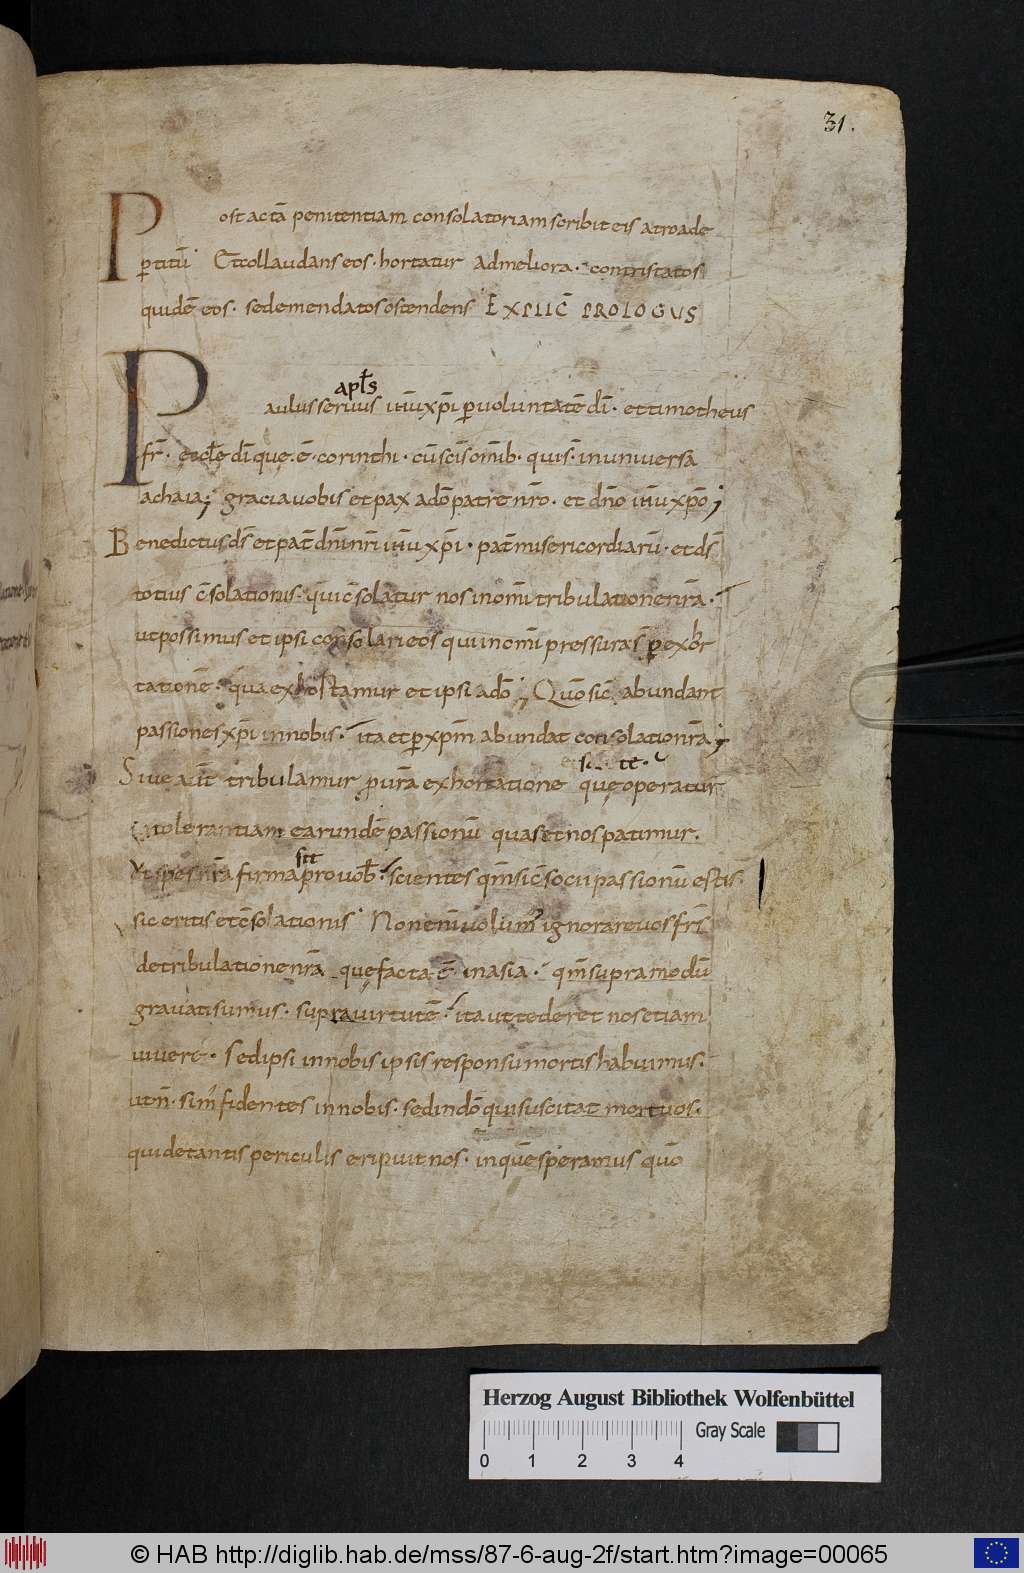 31.
Post actā penitentiam consolatoriam scribit eis a troade
p titū Et collaudans eos · hortatur ad meliora · contristatos
quidē eos · sed emendatos ostendens EXPLIC̄ PROLOGUS
apl̄s
Paulus servus ih̄u xp̄i p voluntatē dī · et timotheus
fr̄ · eccl̄e dī que · ē · corinthi · cū sc̄is om̄ib · qui s̄ · in universa
achaia ; gracia vobis et pax a dō patre nr̄o · et dn̄o ih̄u xp̄o ;
Benedictus ds̄ et pat̄ dn̄i nr̄i ih̄u xp̄i · pat̄ misericordiarū · et ds̄
totius c̄solationis · qui c̄solatur nos in om̄i tribulatione nr̄a ·
ut possimus et ipsi consolari eos qui in om̄i pressura s̄ p exhor
tationē · qua exhortamur et ipsi a dō ; Quō sic abundant
passiones xp̄i in nobis · ita et p xp̄m abundat consolatio nr̄a ;
Sive aut̄ tribulamur p ur̄a exhortatione que operatur
tolerantiam earundē passionū quas et nos patimur ·
Ut spes nr̄a firma pro vob · scientes qm̄ sic socii passionū estis ·
sic eritis et c̄solationis · Non enī volum ignorare vos fr̄s
de tribulatione nr̄a que facta ē in asia · qm̄ supra modū
gravati sumus · supra virtutē · ita ut tederet nos etiam
vivere · Sed ipsi in nobis ipsis responsū mortis habuimus ·
ut n̄ · sim fidentes in nobis · sed in dō qui suscitat mortuos ·
qui de tantis periculis eripuit nos · in quē speramus quō
Herzog August Bibliothek Wolfenbüttel
Gray Scale
0 1 2 3 4
© HAB http://diglib.hab.de/mss/87-6-aug-2f/start.htm?image=00065